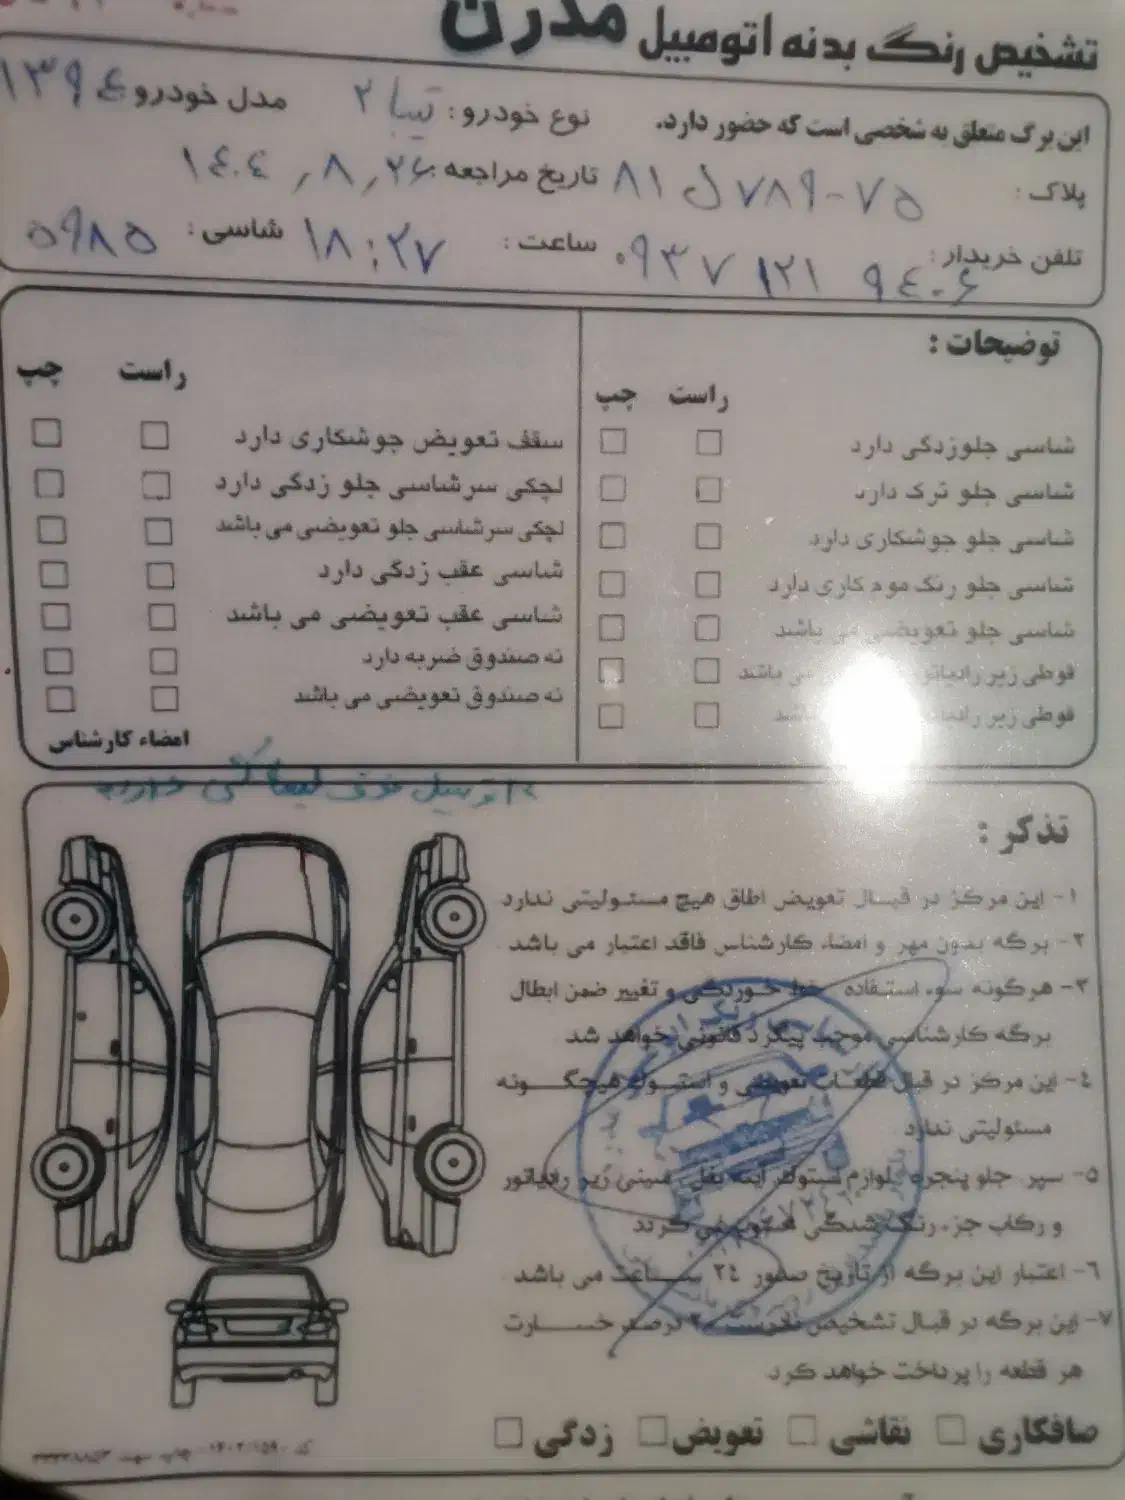 تشخیص رنگ بدنه اتومبیل مدرن
این برگ متعلق به شخصی است که حضور دارد. نوع خودرو: تیبا ۲ مدل خودرو ۱۳۹۴
پلاک: ۷۵-۷۸۹ ل ۸۱ تاریخ مراجعه: ۱۴۰۴,۸,۲۶
تلفن خریدار: ۰۹۳۷ ۱۲۱ ۹۴۰۶ ساعت: ۱۸:۲۷ شاسی: ۵۹۸۵
توضیحات:
راست چپ
شاسی جلوزدگی دارد
شاسی جلو ترک دارد
شاسی جلو جوشکاری دارد
شاسی جلو رنگ موم کاری دارد
شاسی جلو تعویضی می باشد
قوطی زیر رادیاتور می باشد
قوطی زیر
راست چپ
سقف تعویض جوشکاری دارد
لچکی سرشاسی جلو زدگی دارد
لچکی سرشاسی جلو تعویضی می باشد
شاسی عقب زدگی دارد
شاسی عقب تعویضی می باشد
ته صندوق ضربه دارد
ته صندوق تعویضی می باشد
امضاء کارشناس
اتومبیل فوق
تذکر:
۱- این مرکز در قبال تعویض اطاق هیچ مسئولیتی ندارد
۲- برگه بدون مهر و امضاء کارشناس فاقد اعتبار می باشد
۳- هرگونه سوء استفاده خط خوردگی و تغییر ضمن ابطال
برگه کارشناسی موجب پیگرد قانونی خواهد شد
۴- این مرکز در قبال قطعات تعویضی و استوک هیچگونه
مسئولیتی ندارد
۵- سپر جلو پنجره لوازم استوک آینه بغل سینی زیر رادیاتور
و رکاب جزء رنگ شدگی محسوب می گردند
۶- اعتبار این برگه از تاریخ صدور ۲۴ ساعت می باشد
۷- این برگه در قبال تشخیص نادرست ۲۰ درصد خسارت
هر قطعه را پرداخت خواهد کرد
صافکاری نقاشی تعویض زدگی